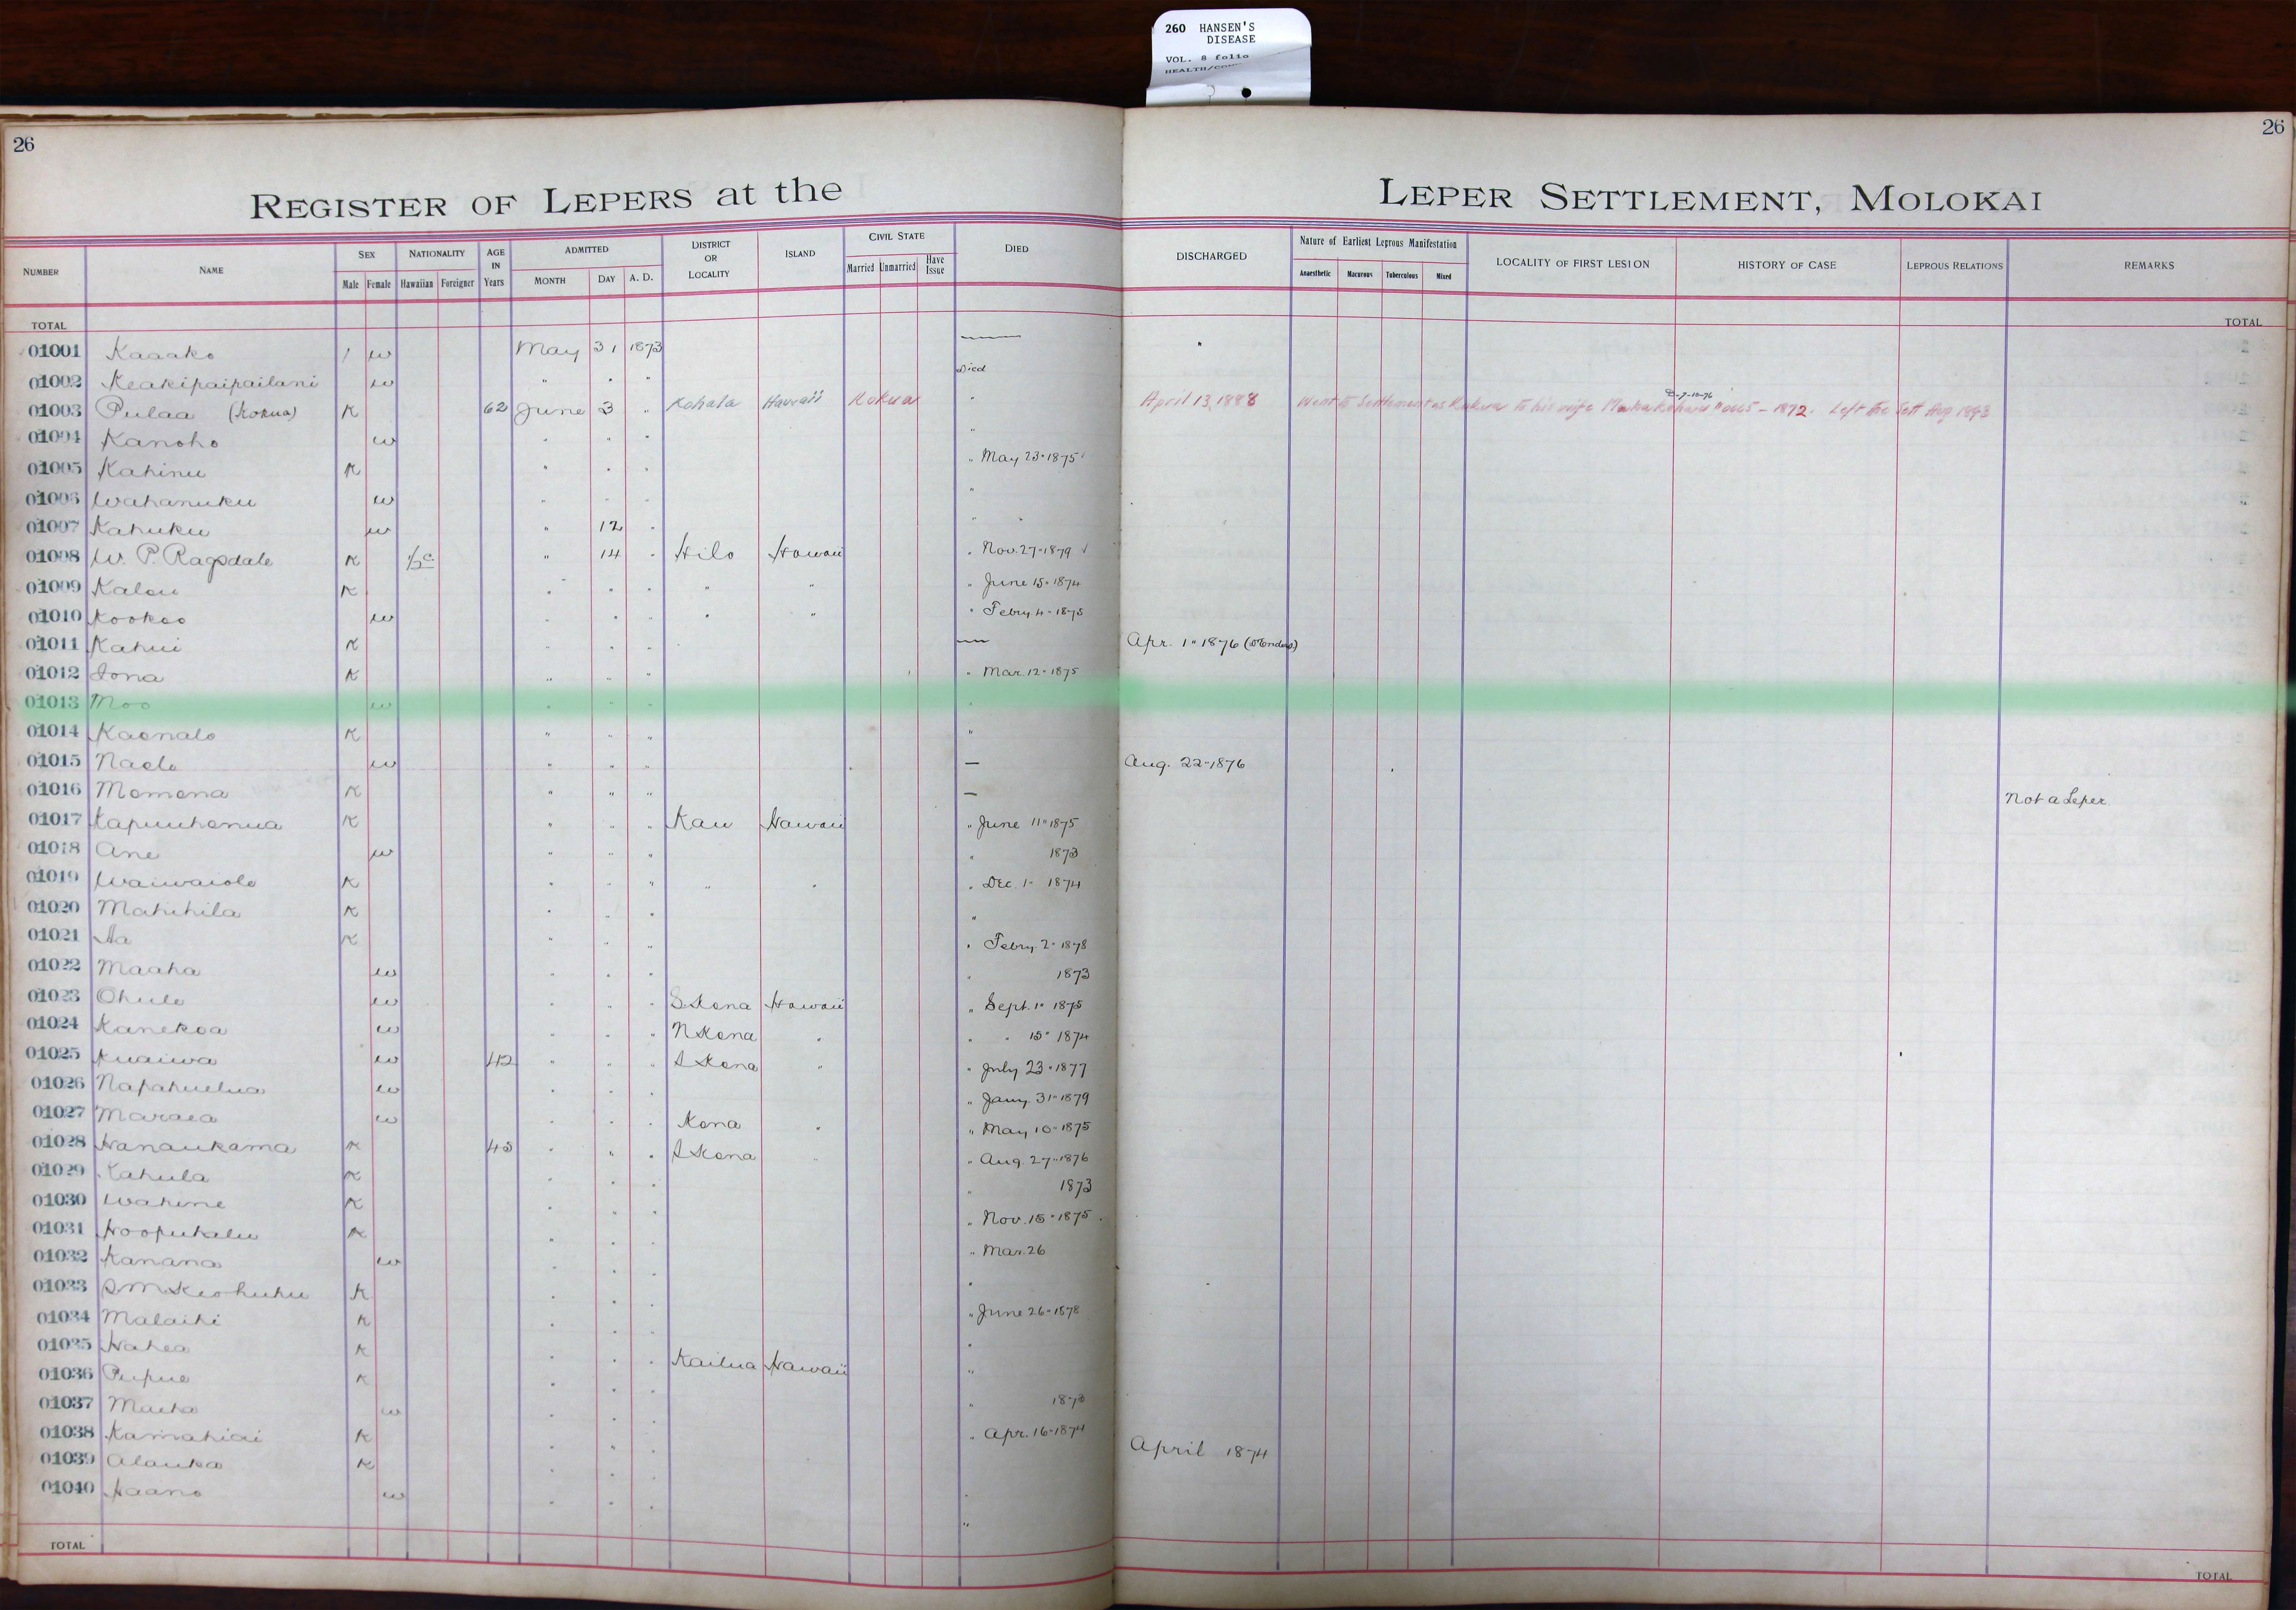 260 HANSEN'S
DISEASE
VOL. 8 folio
26
26
REGISTER OF LEPERS at the LEPER SETTLEMENT, MOLOKAI
NUMBER NAME SEX NATIONALITY AGE IN Years ADMITTED DISTRICT OR LOCALITY ISLAND CIVIL STATE DIED DISCHARGED Nature of Earliest Leprous Manifestation LOCALITY OF FIRST LESION HISTORY OF CASE LEPROUS RELATIONS REMARKS
Male Female Hawaiian Foreigner MONTH DAY A. D. Married Unmarried Have Issue Anaesthetic Macurous Tuberculous Mixed
TOTAL TOTAL
01001 Kaaako / w May 31 1873 —
01002 Keakipaipailani w " " " Died
01003 Pulaa (Kokua) K 62 June 3 " Kohala Hawaii Kokua " April 13, 1888 Went to Settlement as Kokua to his wife 1872. Left the Sett Aug 1893
01004 Kanoho w " " " "
01005 Kahinu K " " " " May 23" 1875
01006 Wahanuku w " " " "
01007 Kahuku w " 12 " "
01008 W. P. Ragsdale K ½ c " 14 " Hilo Hawaii " Nov. 27" 1879
01009 Kalou K " " " " " " June 15" 1874
01010 Kookoo w " " " " " " Febry 4 - 1875
01011 Kahui K " " " — Apr. 1" 1876
01012 Iona K " " " " Mar. 12" 1875
01013 Moo w " " " "
01014 Kaonalo K " " " "
01015 Naelo w " " " — Aug. 22-1876
01016 Momona K " " " — Not a Leper
01017 Kapuuhonua K " " " Kau Hawaii " June 11" 1875
01018 Ane w " " " " 1873
01019 Waiwaiole K " " " " " " Dec. 1" 1874
01020 Mahihila K " " " "
01021 Aa K " " " " Febry. 2" 1878
01022 Maaha w " " " " 1873
01023 Ohule w " " " S. Kona Hawaii " Sept. 1" 1875
01024 Kanekoa w " " " N Kona " " " 15" 1874
01025 Kuaiwa w 42 " " " S Kona " " July 23" 1877
01026 Napahuelua w " " " " Jany. 31" 1879
01027 Maraea w " " " Kona " " May 10" 1875
01028 Hanaukama K 43 " " " S Kona " " Aug. 27" 1876
01029 Kahula K " " " " 1873
01030 Wahine K " " " " Nov. 15" 1875
01031 Hoopukalu K " " " " Mar. 26
01032 Kanana w " " " "
01033 S M Keohuhu K " " " " June 26" 1878
01034 Malaihi K " " " "
01035 Hahea K " " " Kailua Hawaii "
01036 Pupue K " " " " 1873
01037 Maeha w " " " " Apr. 16-1874
01038 Kamahiai K " " " April 1874
01039 Alauka K " " " "
01040 Haano w " " " "
TOTAL TOTAL